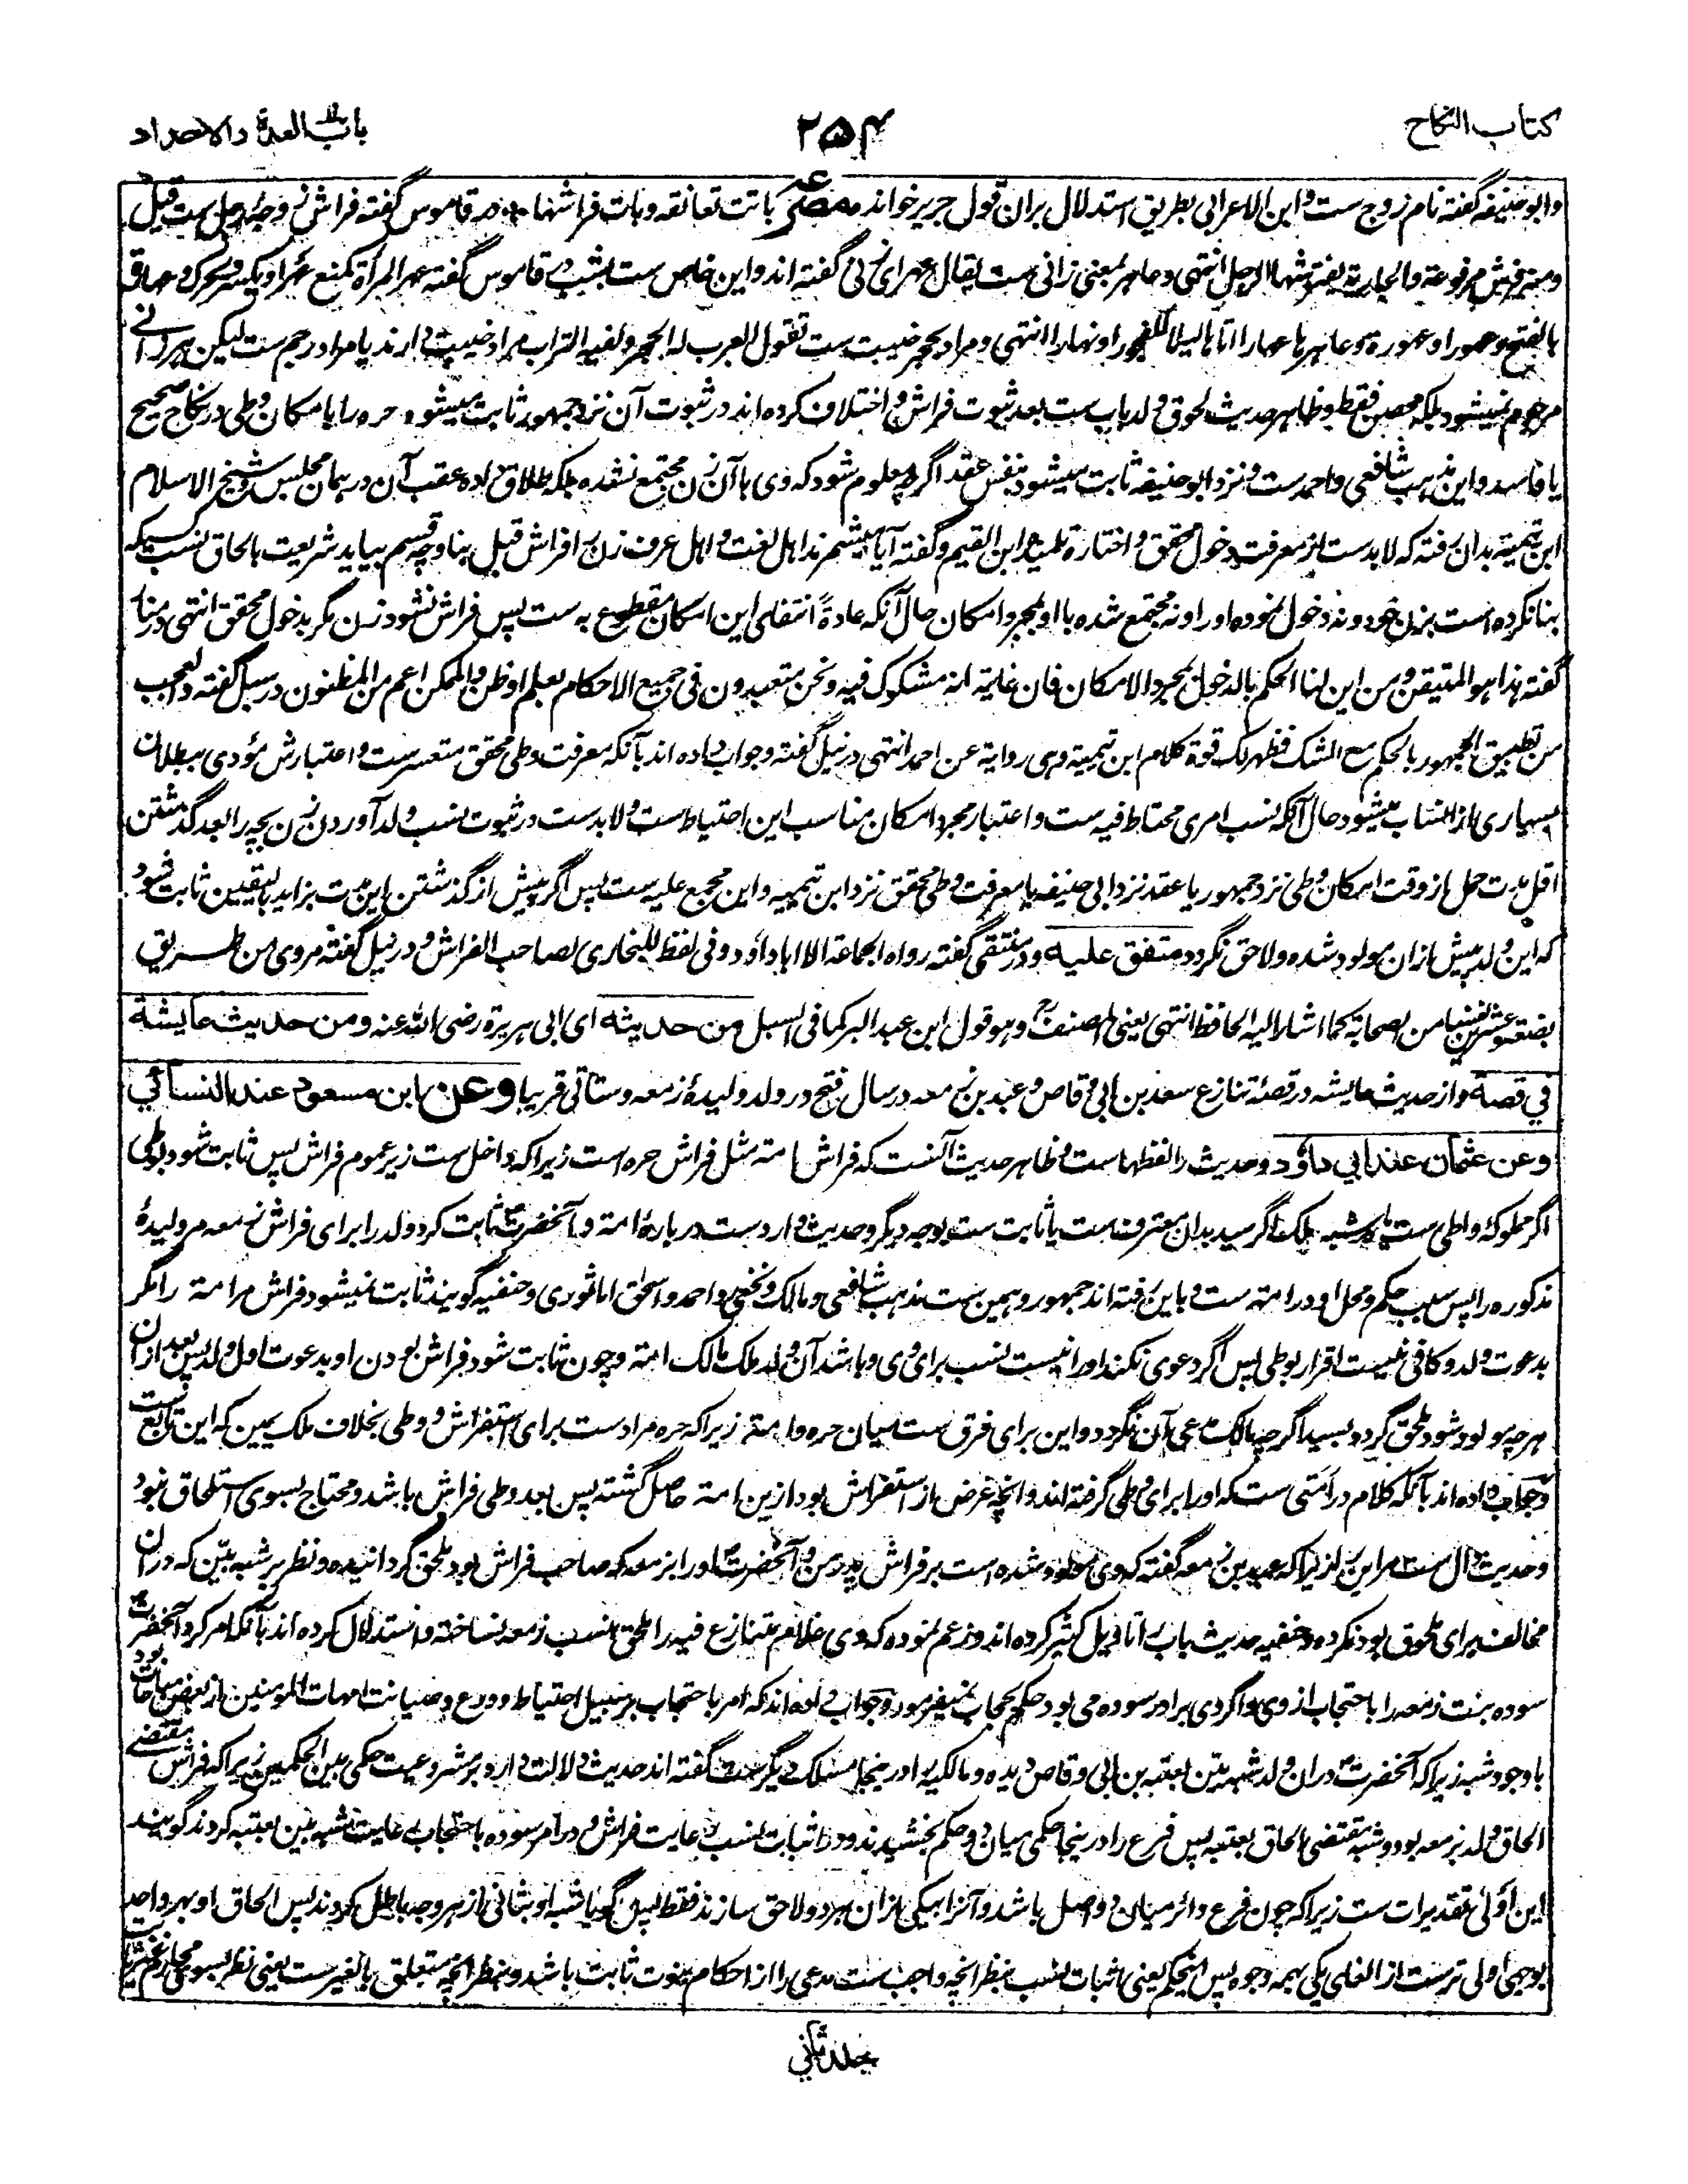 کتاب النکاح
۲۵۴
باب العدة والاحداد
وابو حنیفه گفته نام زوج ست و ابن الاعرابی بطریق استدلال بران قول جریر خوانده مصرع باتت تعانقه وبات فراشها در قاموس گفته فراش زوجهٔ رجل ست قیل
ومنه فرش مرفوعة والجاریة یفترشها الرجل انتهی و عاهر بمعنی زانی ست یقال عهر ای زنی گفته اند و این خاص ست بشب در قاموس گفته عهر المرأة کمنع عهرا ویکسر ویحرک وعهارة
بالفتح وعهورا وعهورة وعاهرها عهارا اتاها لیلا للفجور او نهارا انتهی ومراد بحجر خیبت ست تقول العرب له الحجر وبفیه التراب مراد خیبت دارند یا مراد رجم ست لیکن هر زانی
مرجوم نمیشود بلکه محصن فقط و ظاهر حدیث لحوق ولد باب ست بعد ثبوت فراش و اختلاف کرده اند در ثبوت آن نزد جمهور ثابت میشود حره را بامکان وطی در نکاح صحیح
یا فاسد و این مذهب شافعی و احمد ست و نزد ابو حنیفه ثابت میشود بنفس عقد اگرچه معلوم شود که وی با آن زن مجتمع نشده بلکه طلاق داده عقب آن در همان مجلس و شیخ الاسلام
ابن تیمیه بدان رفته که لابد ست از معرفت دخول محقق و اختاره تلمیذه ابن القیم و گفته آیا میشمرند اهل لغت و اهل عرف زن را فراش قبل بنا و چه قسم بیاید شریعت بالحاق نسب کسیکه
بنا نکرده است بزن خود و نه دخول نموده او را و نه مجتمع شده با او بمجرد امکان حال آنکه عادةً انتفای این امکان مقطوع به ست پس فراش نشود زن مگر بدخول محقق انتهی در منار
گفته هذا هو المتیقن ومن این لنا الحکم بالدخول بمجرد الامکان فان غایته انه مشکوک فیه ونحن متعبدون فی جمیع الاحکام بعلم او ظن والممکن اعم من المظنون در سبل گفته والعجب
من تطبیق الجمهور بالحکم مع الشک فظهر لک قوة کلام ابن تیمیة وهی روایة عن احمد انتهی در نیل گفته وجواب داده اند بآنکه معرفت وطی محقق متعسر ست و اعتبارش مؤدی ببطلان
بسیاری از انساب میشود حال آنکه نسب امری محتاط فیه ست و اعتبار مجرد امکان مناسب این احتیاط ست ولابد ست در ثبوت نسب ولد آوردن زن بچه را بعد گذشتن
اقل مدت حمل از وقت امکان وطی نزد جمهور یا عقد نزد ابی حنیفه یا معرفت وطی محقق نزد ابن تیمیه و این مجمع علیه ست پس اگر پیش از گذشتن این مدت بزاید بیقین ثابت شود
که این ولد پیش ازان مولود شده ولاحق نگردد متفق علیه ودر منتقی گفته رواه الجماعة الا ابا داؤد وفی لفظ للبخاری لصاحب الفراش ودر نیل گفته مروی من طریق
بضعة وعشرین نفسا من الصحابة کما اشار الیه الحافظ انتهی یعنی المصنف رح وهو قول ابن عبد البر کما فی السبل ومن حدیثه ای ابی هریرة رضی الله عنه ومن حدیث عایشة
فی قصة و از حدیث عایشه در قصهٔ تنازع سعد بن ابی وقاص و عبد بن زمعه در سال فتح در ولد ولیدهٔ زمعه وستأتی قریبا وعن ابن مسعود عند النسائی
وعن عثمان عند ابی داؤد و حدیث را لفظهاست و ظاهر حدیث آنست که فراش امه مثل فراش حره است زیراکه داخل ست زیر عموم فراش پس ثابت شود بوطی
اگر مملوکهٔ واطی ست یا در شبهه ملک اگر سید بدان معترف ست یا ثابت ست بوجه دیگر و حدیث وارد ست دربارهٔ امة و آنحضرت ثابت کرد ولد را برای فراش زمعه مر ولیدهٔ
مذکوره را پس سبب حکم و محل او در امة ست و باین رفته اند جمهور و همین ست مذهب شافعی و مالک و نخعی و احمد و اسحٰق اما ثوری و حنفیه گویند ثابت نمیشود فراش مر امة را مگر
بدعوت ولد و کافی نیست اقرار بوطی پس اگر دعوی نکند او را نیست نسب برای وی و باشد آن ولد ملک مالک امة و چون ثابت شود فراش بودن او بدعوت اول ولد پس بعد ازان
هرچه مولود شود ملحق گردد بسید اگرچه مالک مدعی آن نگردد و این برای فرق ست میان حره و امة زیراکه حره مراد ست برای استفراش و وطی بخلاف ملک یمین که این تابع ست
و جواب داده اند بآنکه کلام در امتی ست که او را برای وطی گرفته اند و آنچه غرض از استفراش بود ازین امة حاصل گشته پس بعد وطی فراش باشد و محتاج بسوی استلحاق نبود
و حدیث دال ست مر این را زیراکه عبد بن زمعه گفته که وی مولود شده است بر فراش پدر من و آنحضرت او را بزمعه که صاحب فراش بود ملحق گردانیده و نظر بر شبه بین که دران
مخالف برای ملحوق بود نکرده و حنفیه حدیث باب را تاویل کثیر کرده اند و زعم نموده که وی غلام متنازع فیه را ملحق بنسب زمعه نساخته و استدلال کرده اند بآنکه امر کرد آنحضرت
سوده بنت زمعه را باحتجاب از وی و اگر وی برادر سوده می بود حکم بحجاب نمیفرمود و جواب داده اند که امر باحتجاب بر سبیل احتیاط و ورع و صیانت امهات المومنین از بعض مباحات بود
با وجود شبه زیراکه آنحضرت دران ولد شبه بین بعتبه بن ابی وقاص دیده و مالکیه را درینجا مسلک دیگر ست گفته اند حدیث دلالت دارد بر مشروعیت حکمی بین الحکمین زیراکه فراش مقتضی
الحاق ولد بزمعه بود و شبه مقتضی الحاق بعتبه پس فرع را درینجا حکمی میان دو حکم بخشیدند و در اثبات نسب رعایت فراش و در امر سوده باحتجاب رعایت شبه بین بعتبه کردند گویند
این اولٰی تقدیرات ست زیراکه چون فرع دائر میان دو اصل باشد و آنرا بیکی ازان هر دو لاحق سازند فقط پس گویا شبه او بثانی از هر وجه باطل کردند پس الحاق او بهر واحد
بوجهی اولی تر ست از الغای یکی بهمه وجوه پس این حکم یعنی اثبات نسب بنظر آنچه واجب ست مدعی را از احکام بنوت ثابت باشد و بنظر آنچه متعلق بالغیر ست یعنی نظر بسوی محارم
جلد ثانی